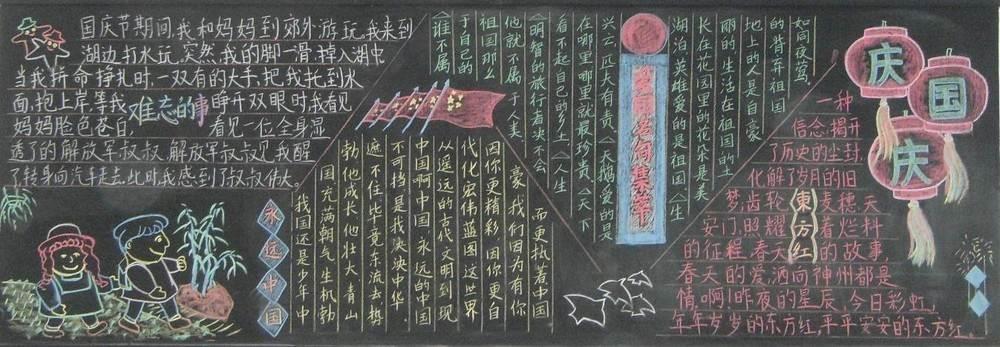 国庆节期间,我和妈妈到郊外游玩,我来到
湖边打水玩,突然,我的脚一滑,掉入湖中
当我拼命挣扎时,一双有的大手,把我托到水
面,抱上岸,等我
睁开双眼时,我看见
难忘的事
妈妈脸色苍白,
看见一位全身湿
透了的解放军叔叔,解放军叔叔见我醒
了转身向汽车走去,此时,我感到了叔叔伟大。
永远中国
而更执著中国
豪 我们因为有你
因你更精彩 因你更自
代化宏伟蓝图这世界
从遥远的古代文明到现
中国啊中国 永远的中国
不可挡 是我泱泱中华
遮不住 比竟东流去 势
勃 他成长 他壮大 青山
国充满朝气生机勃
我国还是少年中
如同夜莺,
的背弃祖国
地上的人是自豪
丽的 生活在祖国的土
长在花园里的花朵是美
湖泊 英雄爱的是祖国 《生
兴亡 匹夫有责 《天鹅爱的是
在哪里哪里就最珍贵 《天下
看不起自己的乡土 《人生
《明智的旅行者决不会
他就不属于人类
祖国那么
于自己的
《谁不属
庆国庆
一种
信念,揭开
了历史的尘封,
化解了岁月的旧
梦,齿轮
麦穗,天
安门,照耀
着烂料
的征程,春天
的故事,
東方红
春天的爱洒向神州都是
情,啊!昨夜的星辰,今日彩虹,
年年岁岁的东方红,平平安安的东方红。